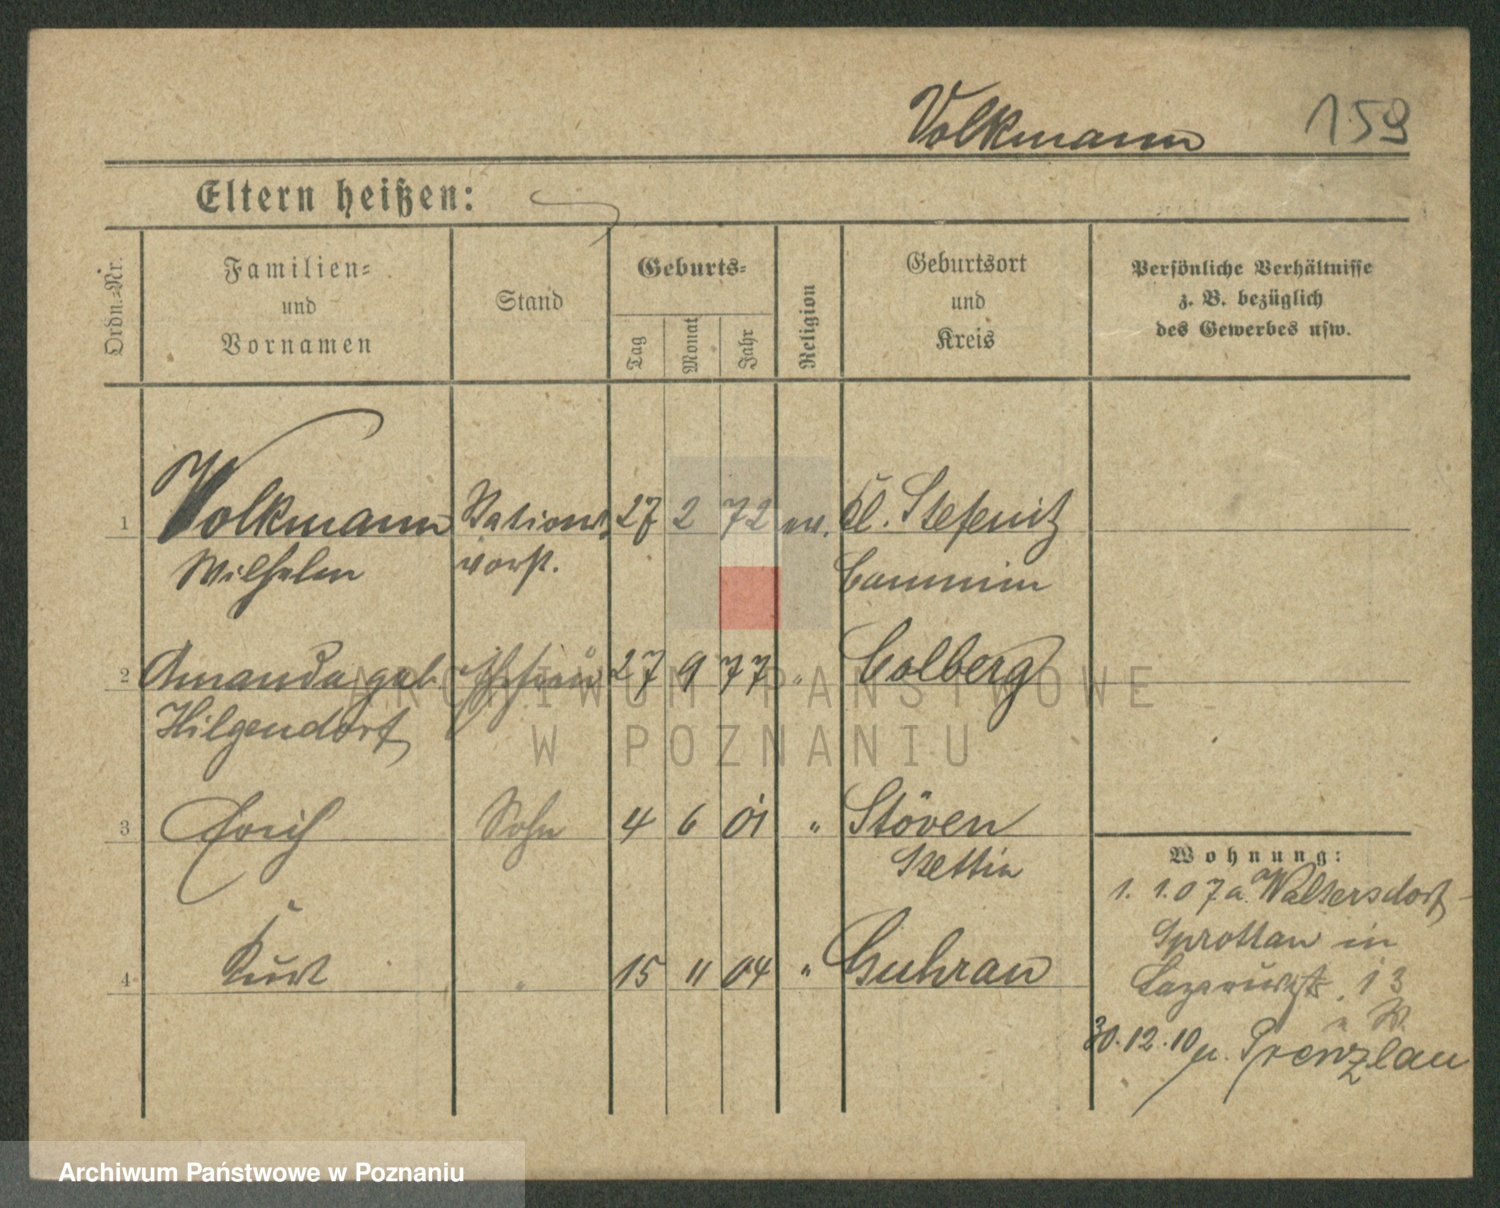 Volkmann 159
Eltern heißen:
Ordn.-Nr.
Familien-
und
Vornamen
Stand
Geburts-
Tag
Monat
Jahr
Religion
Geburtsort
und
Kreis
Persönliche Verhältnisse
z. B. bezüglich
des Gewerbes usw.
1 Volkmann Stations 27 2 72 ev. Kl. Stepenitz
Wilhelm vorst. Cammin
2 Amanda geb. Ehefrau 27 9 77 " Colberg
Hilgendorf
3 Erich Sohn 4 6 01 " Stöven
Stettin
4 Kurt " 15 11 04 " Guhrau
Wohnung:
1. 1. 07 a. Waltersdorf-
Sprottau in
Lazarusstr. 13
a W.
30.12.10 n. Prenzlau
ARCHIWUM PAŃSTWOWE
W POZNANIU
Archiwum Państwowe w Poznaniu